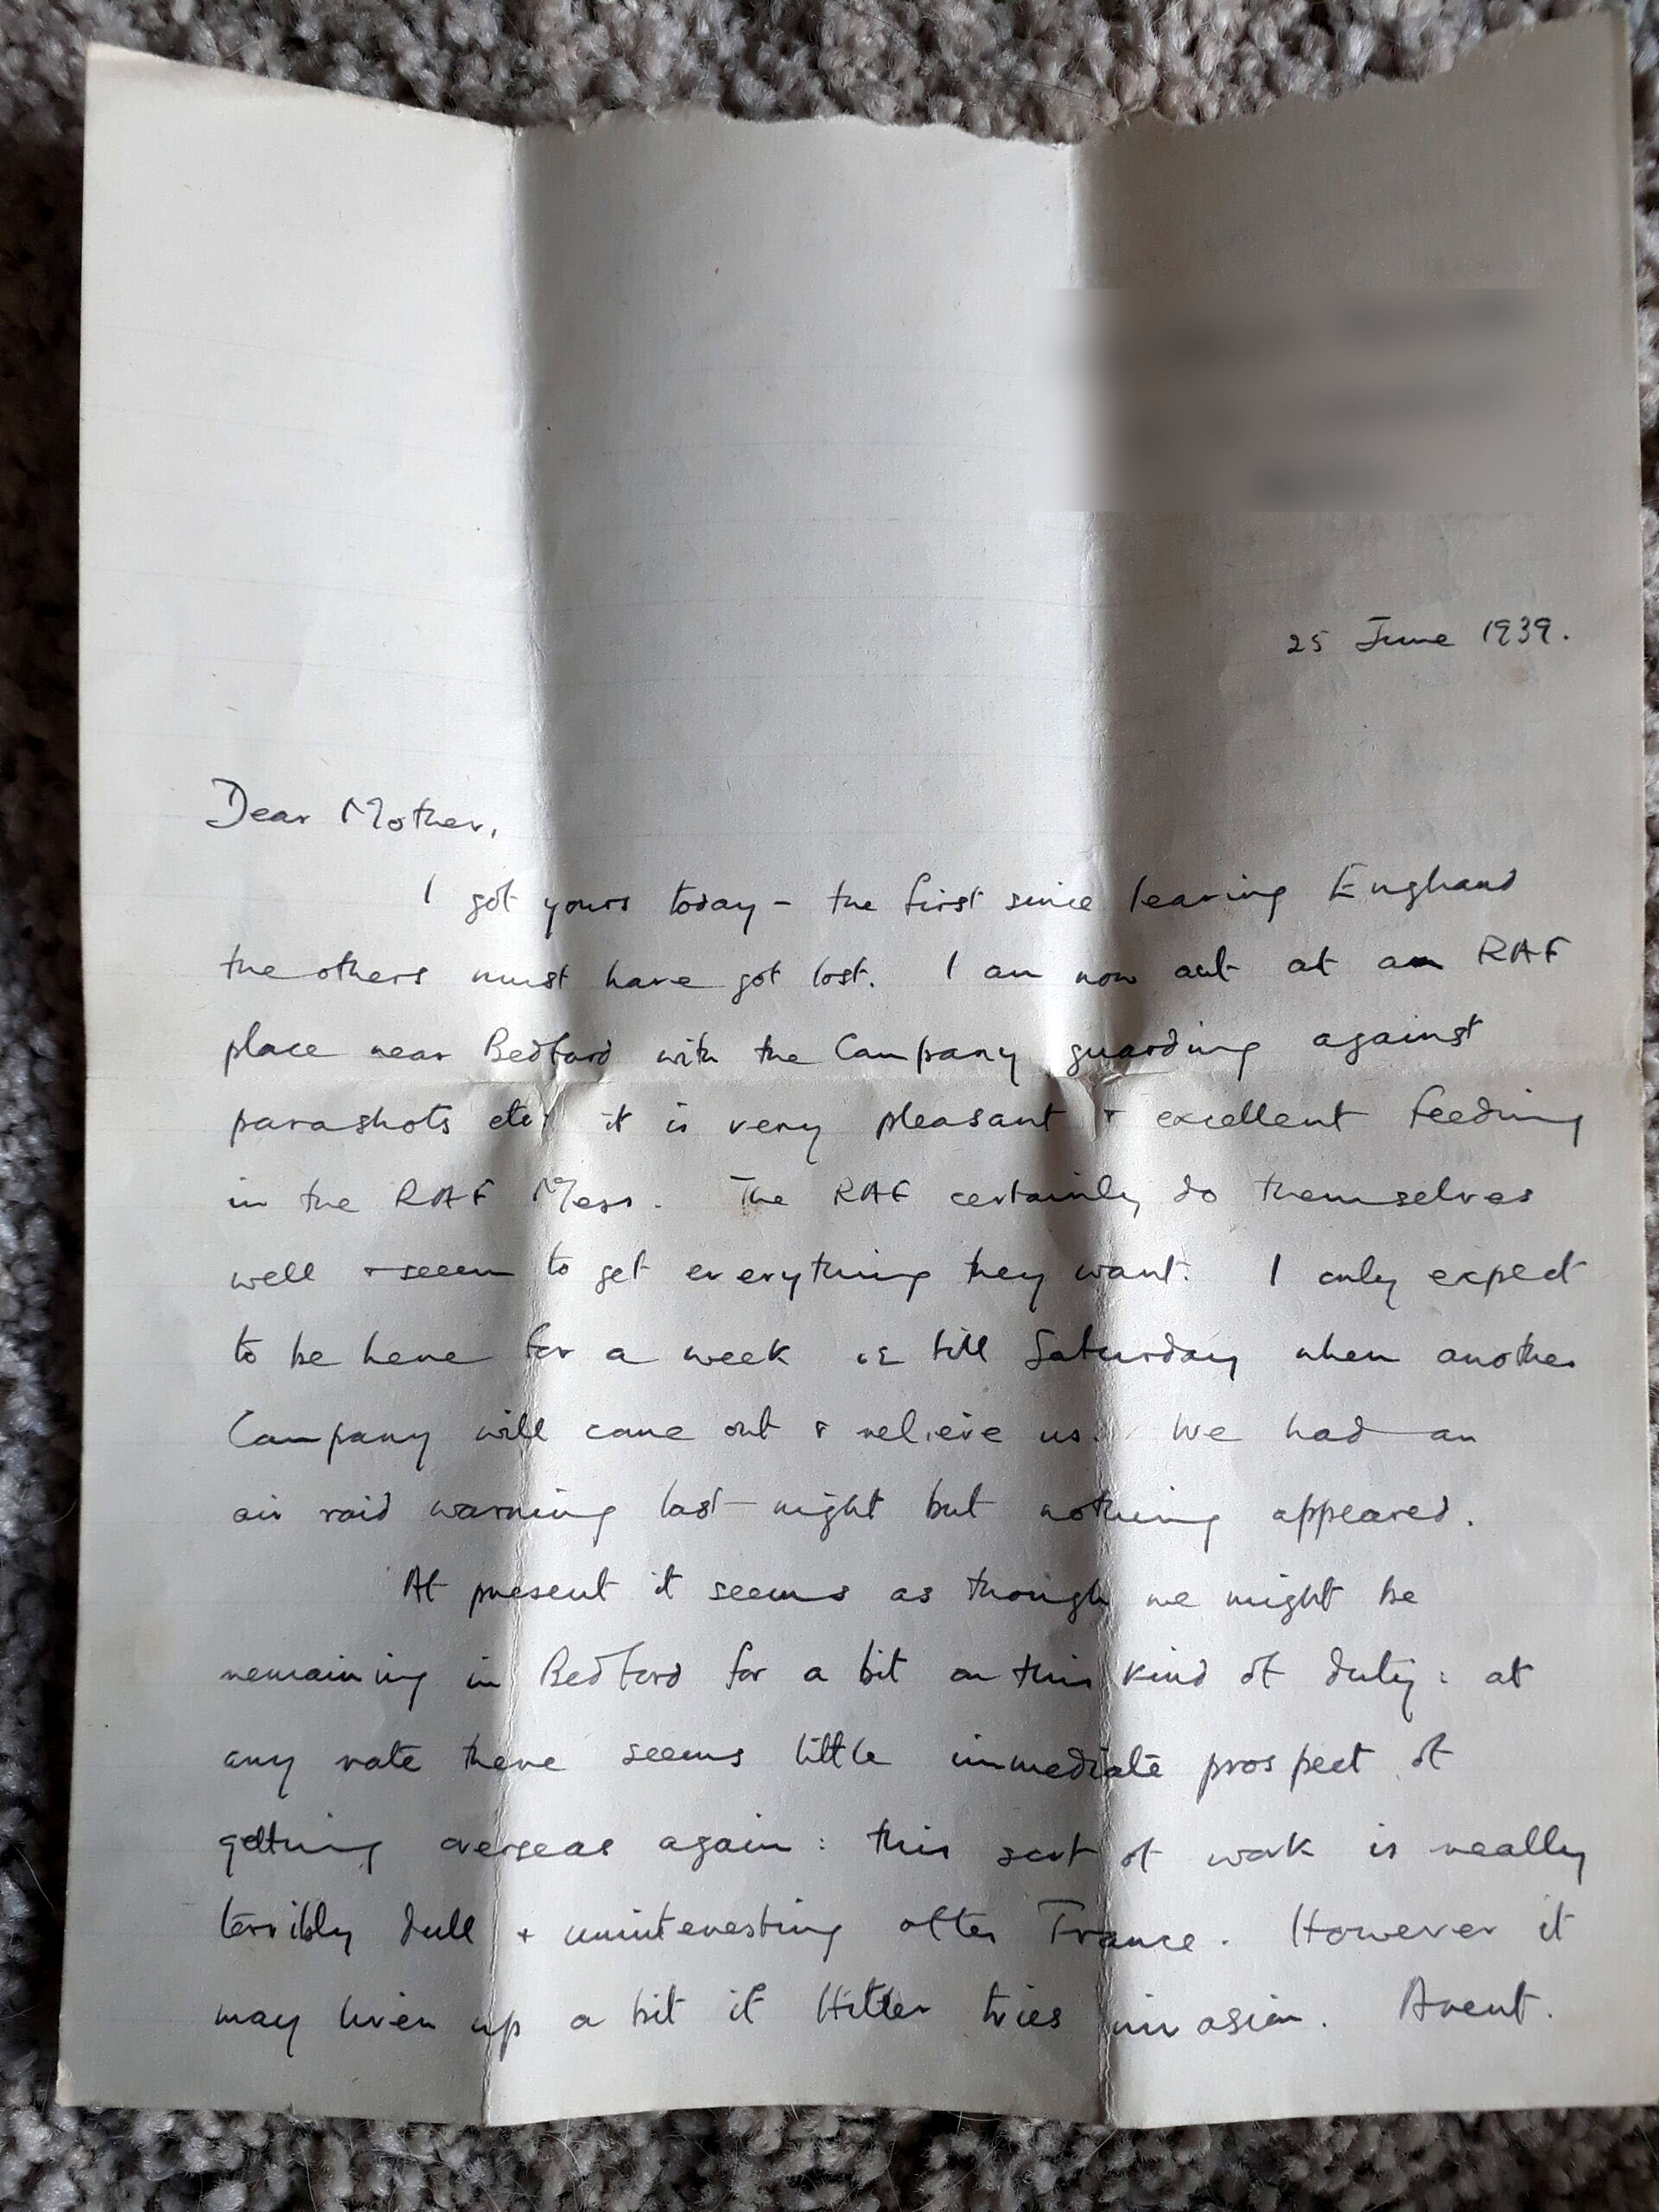 25 June 1939.
Dear Mother,
I got yours today - the first since leaving England
the others must have got lost. I am now out at an RAF
place near Bedford with the Company guarding against
parashots etc: it is very pleasant & excellent feeding
in the RAF Mess. The RAF certainly do themselves
well & seem to get everything they want. I only expect
to be here for a week ie till Saturday when another
Company will come out & relieve us. We had an
air raid warning last night but nothing appeared.
At present it seems as though we might be
remaining in Bedford for a bit on this kind of duty: at
any rate there seems little immediate prospect of
getting overseas again: this sort of work is really
terribly dull & uninteresting after France. However it
may liven up a bit if Hitler tries invasion.